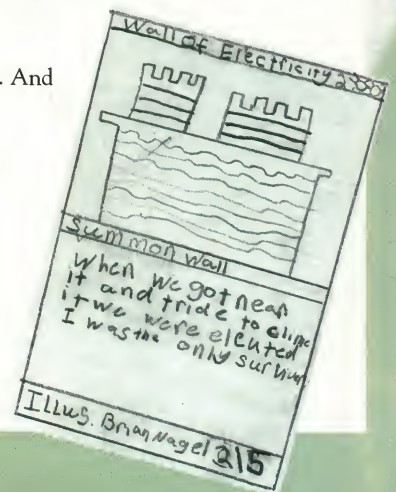 . And
Wall of Electricity 2
Summon Wall
When we got near
it and tride to clime
it we were elected
I was the only
Illus. Brian Nagel 2/5